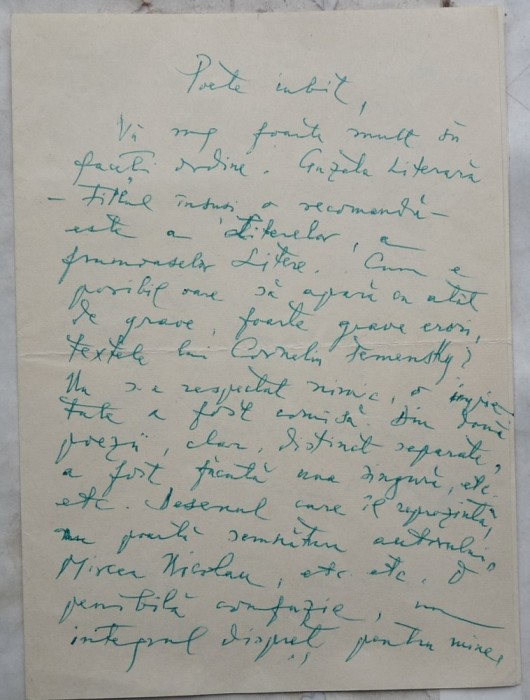 Poete iubit,
Vă rog foarte mult să
faceți ordine. Gazeta Literară
– Titlul însuși o recomandă –
este a Literelor, a
frumoaselor Litere. Cum e
posibil oare să apară cu atât
de grave, foarte grave erori,
textele lui Corneliu Temensky?
Nu s-a respectat nimic, o impie-
tate a fost comisă. Din două
poezii, clar, distinct separate,
a fost făcută una singură, etc.
etc. Desenul care îl reprezintă,
nu poartă semnătura autorului,
Mircea Nicolau, etc. etc. O
penibilă confuzie, un
integral dispreț, pentru mine,